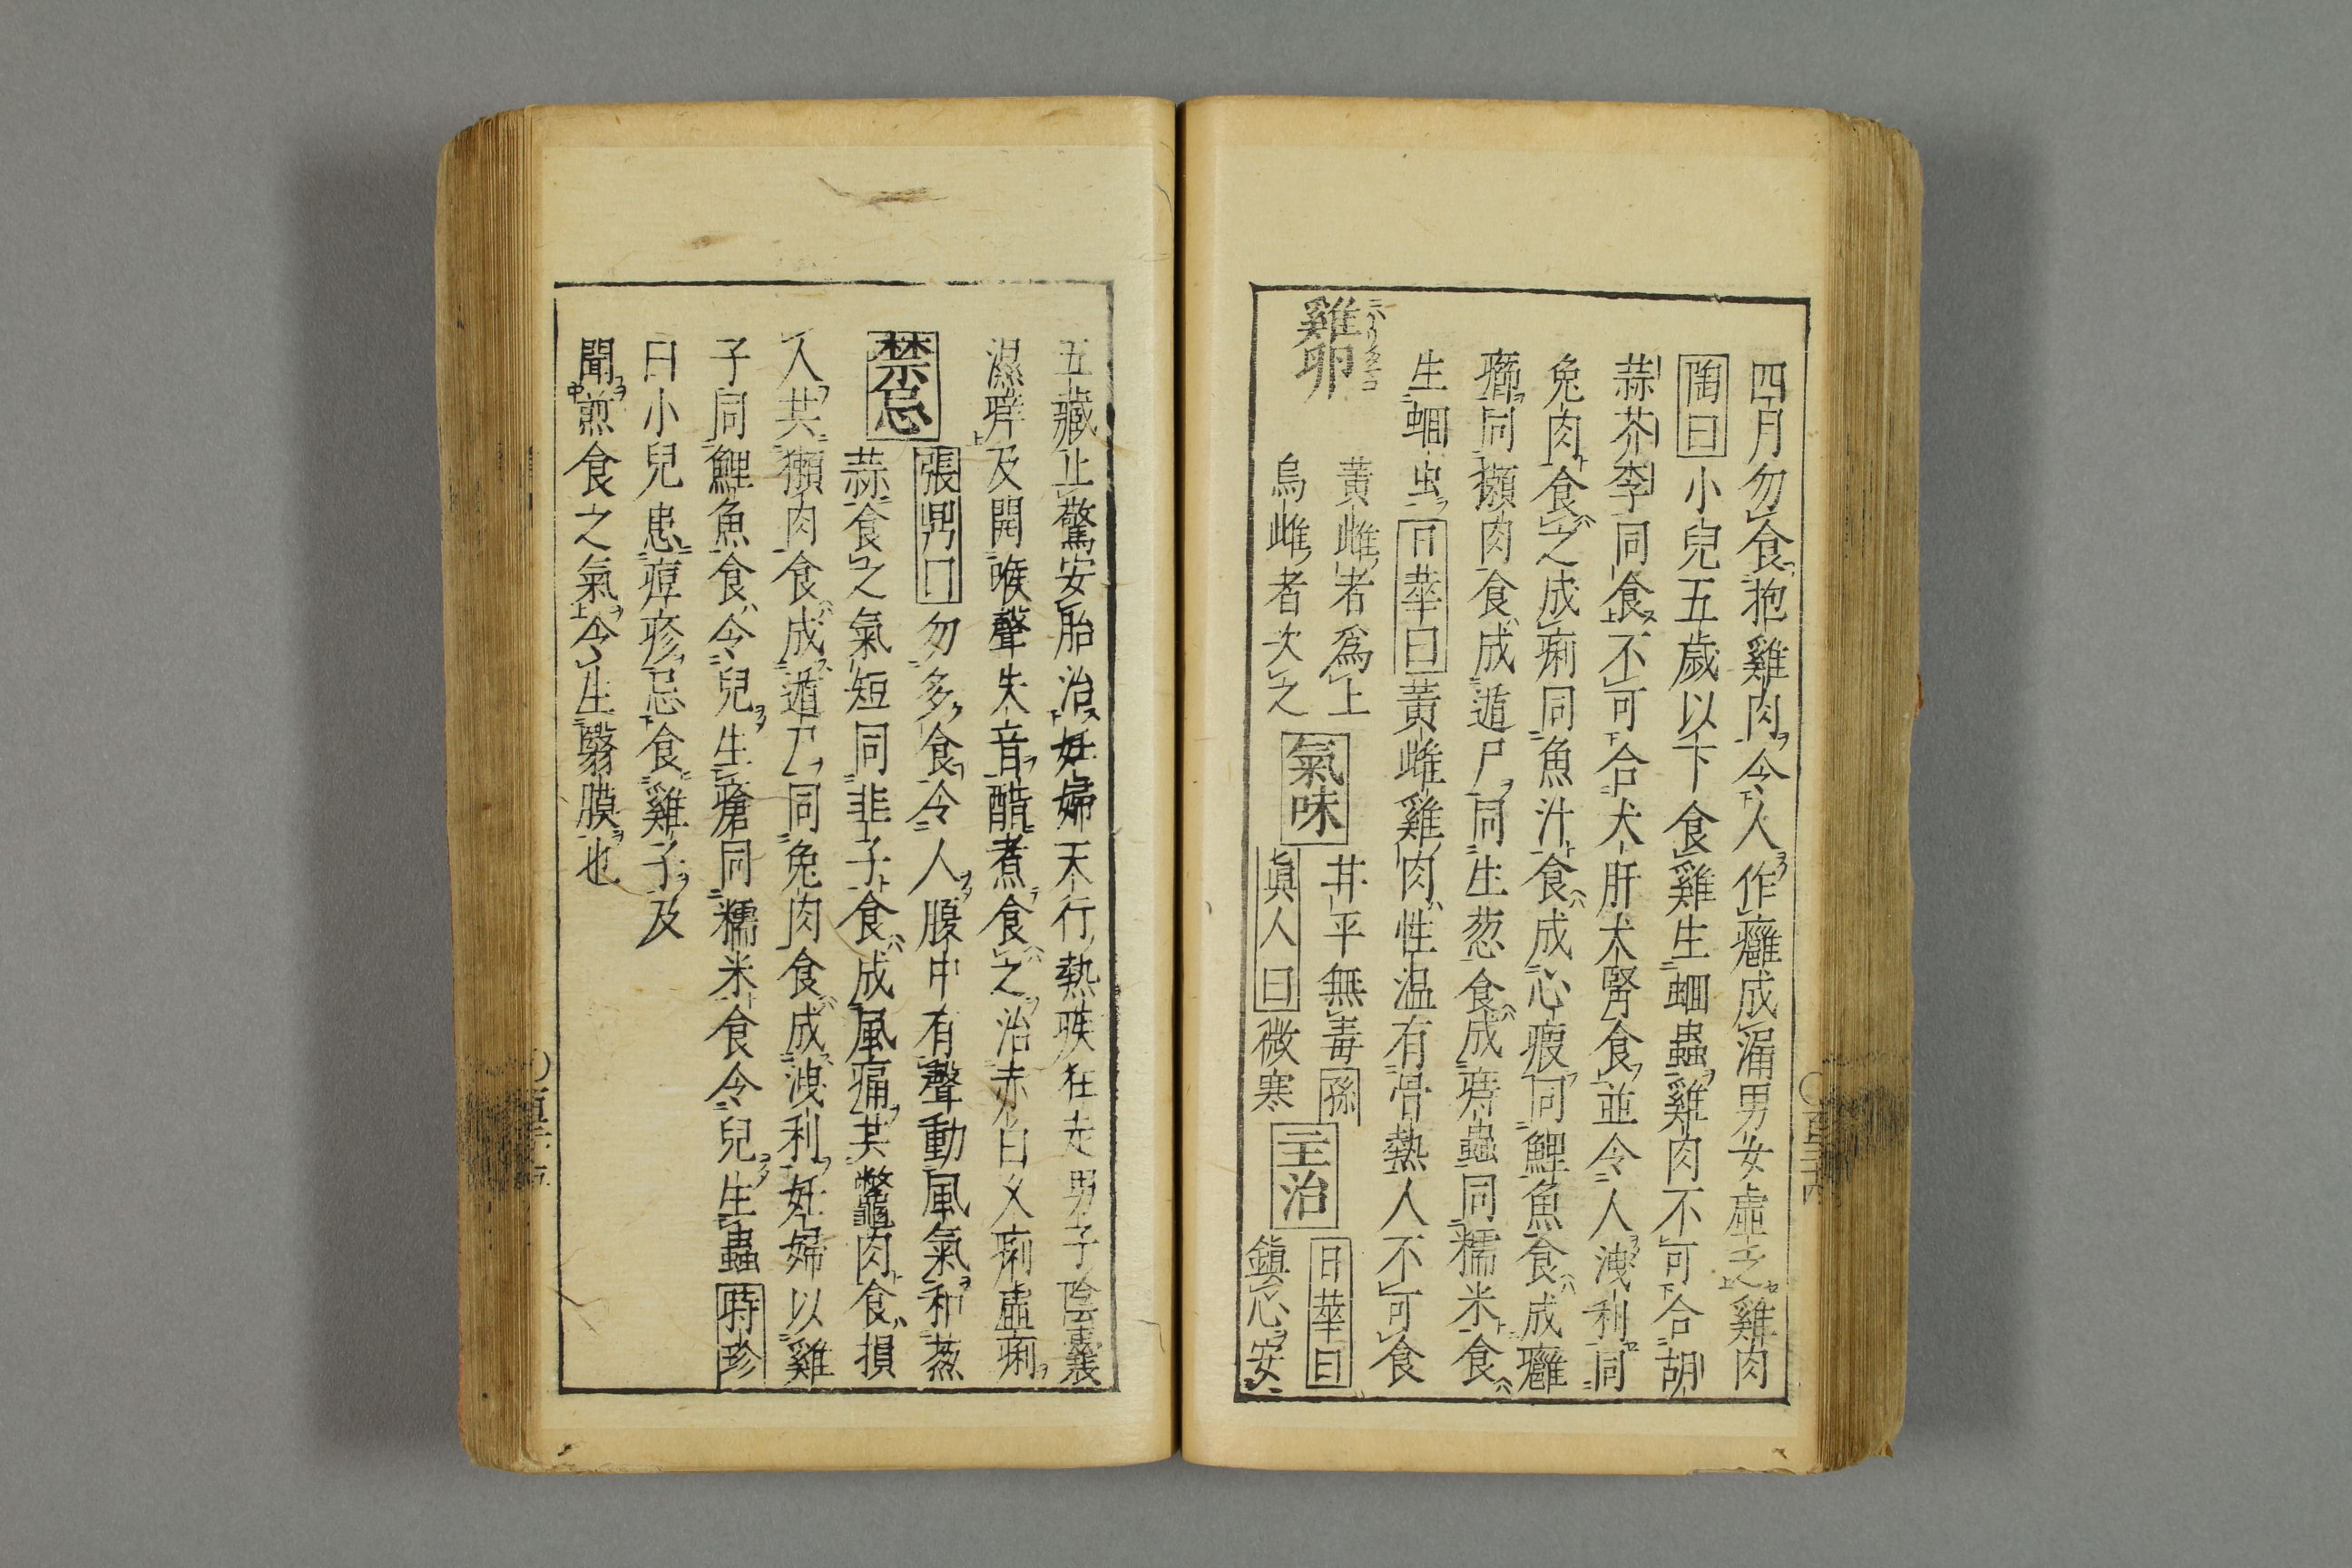 四月勿食抱雞肉令人作癰成漏男女虛乏雞肉
陶曰小兒五歲以下食雞生蛔蟲雞肉不可合胡
蒜芥李同食不可合犬肝犬腎食並令人洩利同
兔肉食之成痢同魚汁食成心瘕同鯉魚食成癰
癤同獺肉食成遁尸同生葱食成痔蟲同糯米食
生蛔虫日華曰黃雌雞肉性温有骨熱人不可食
雞卵
黃雌者爲上
烏雌者次之
氣味
甘平無毒孫
眞人曰微寒
主治
日華曰
鎮心安
五藏止驚安胎治妊婦天行熱疾狂走男子陰囊
濕痒及開喉聲失音醋煮食之治赤白久痢虛痢
禁忌
張鼎曰勿多食令人腹中有聲動風氣和葱
蒜食之氣短同韭子食成風痛共鼈肉食損
人共獺肉食成遁尸同兔肉食成洩利妊婦以雞
子同鯉魚食令兒生瘡同糯米食令兒生蟲時珍
曰小兒患痘疹忌食雞子及
聞煎食之氣令生翳膜也